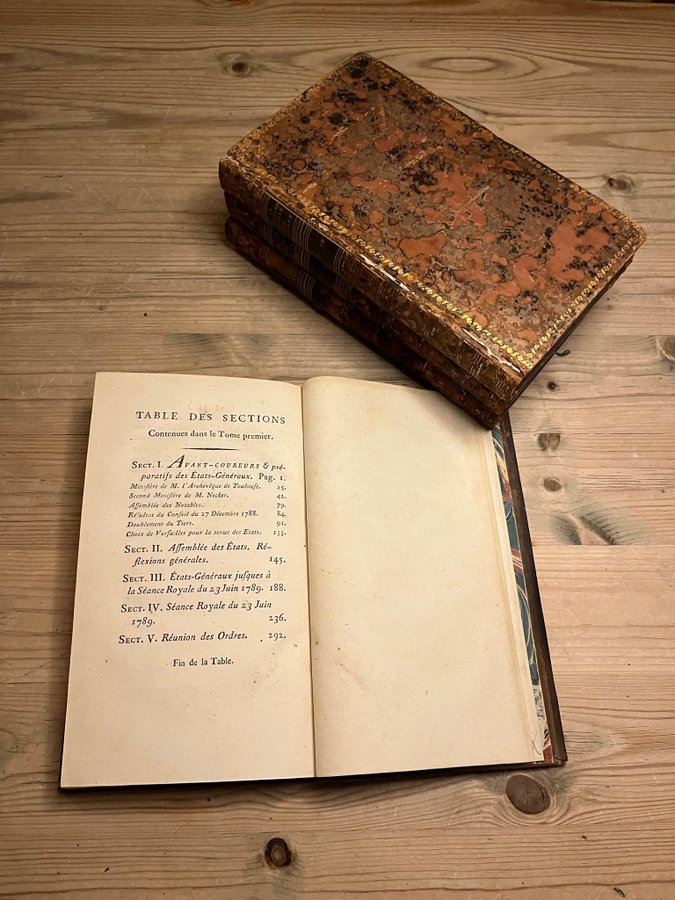 TABLE DES SECTIONS
Contenues dans le Tome premier.
SECT. I. AVANT-COUREURS & pré-
paratifs des États-Généraux. Pag. 1.
Ministère de M. l'Archevêque de Toulouse. 15.
Second Ministère de M. Necker. 42.
Assemblée des Notables. 79.
Résultat du Conseil du 27 Décembre 1788. 84.
Doublement du Tiers. 91.
Choix de Versailles pour la tenue des Etats. 133.
SECT. II. Assemblée des États. Ré-
flexions générales. 145.
SECT. III. États-Généraux jusques à
la Séance Royale du 23 Juin 1789. 188.
SECT. IV. Séance Royale du 23 Juin
1789. 236.
SECT. V. Réunion des Ordres. 292.
Fin de la Table.